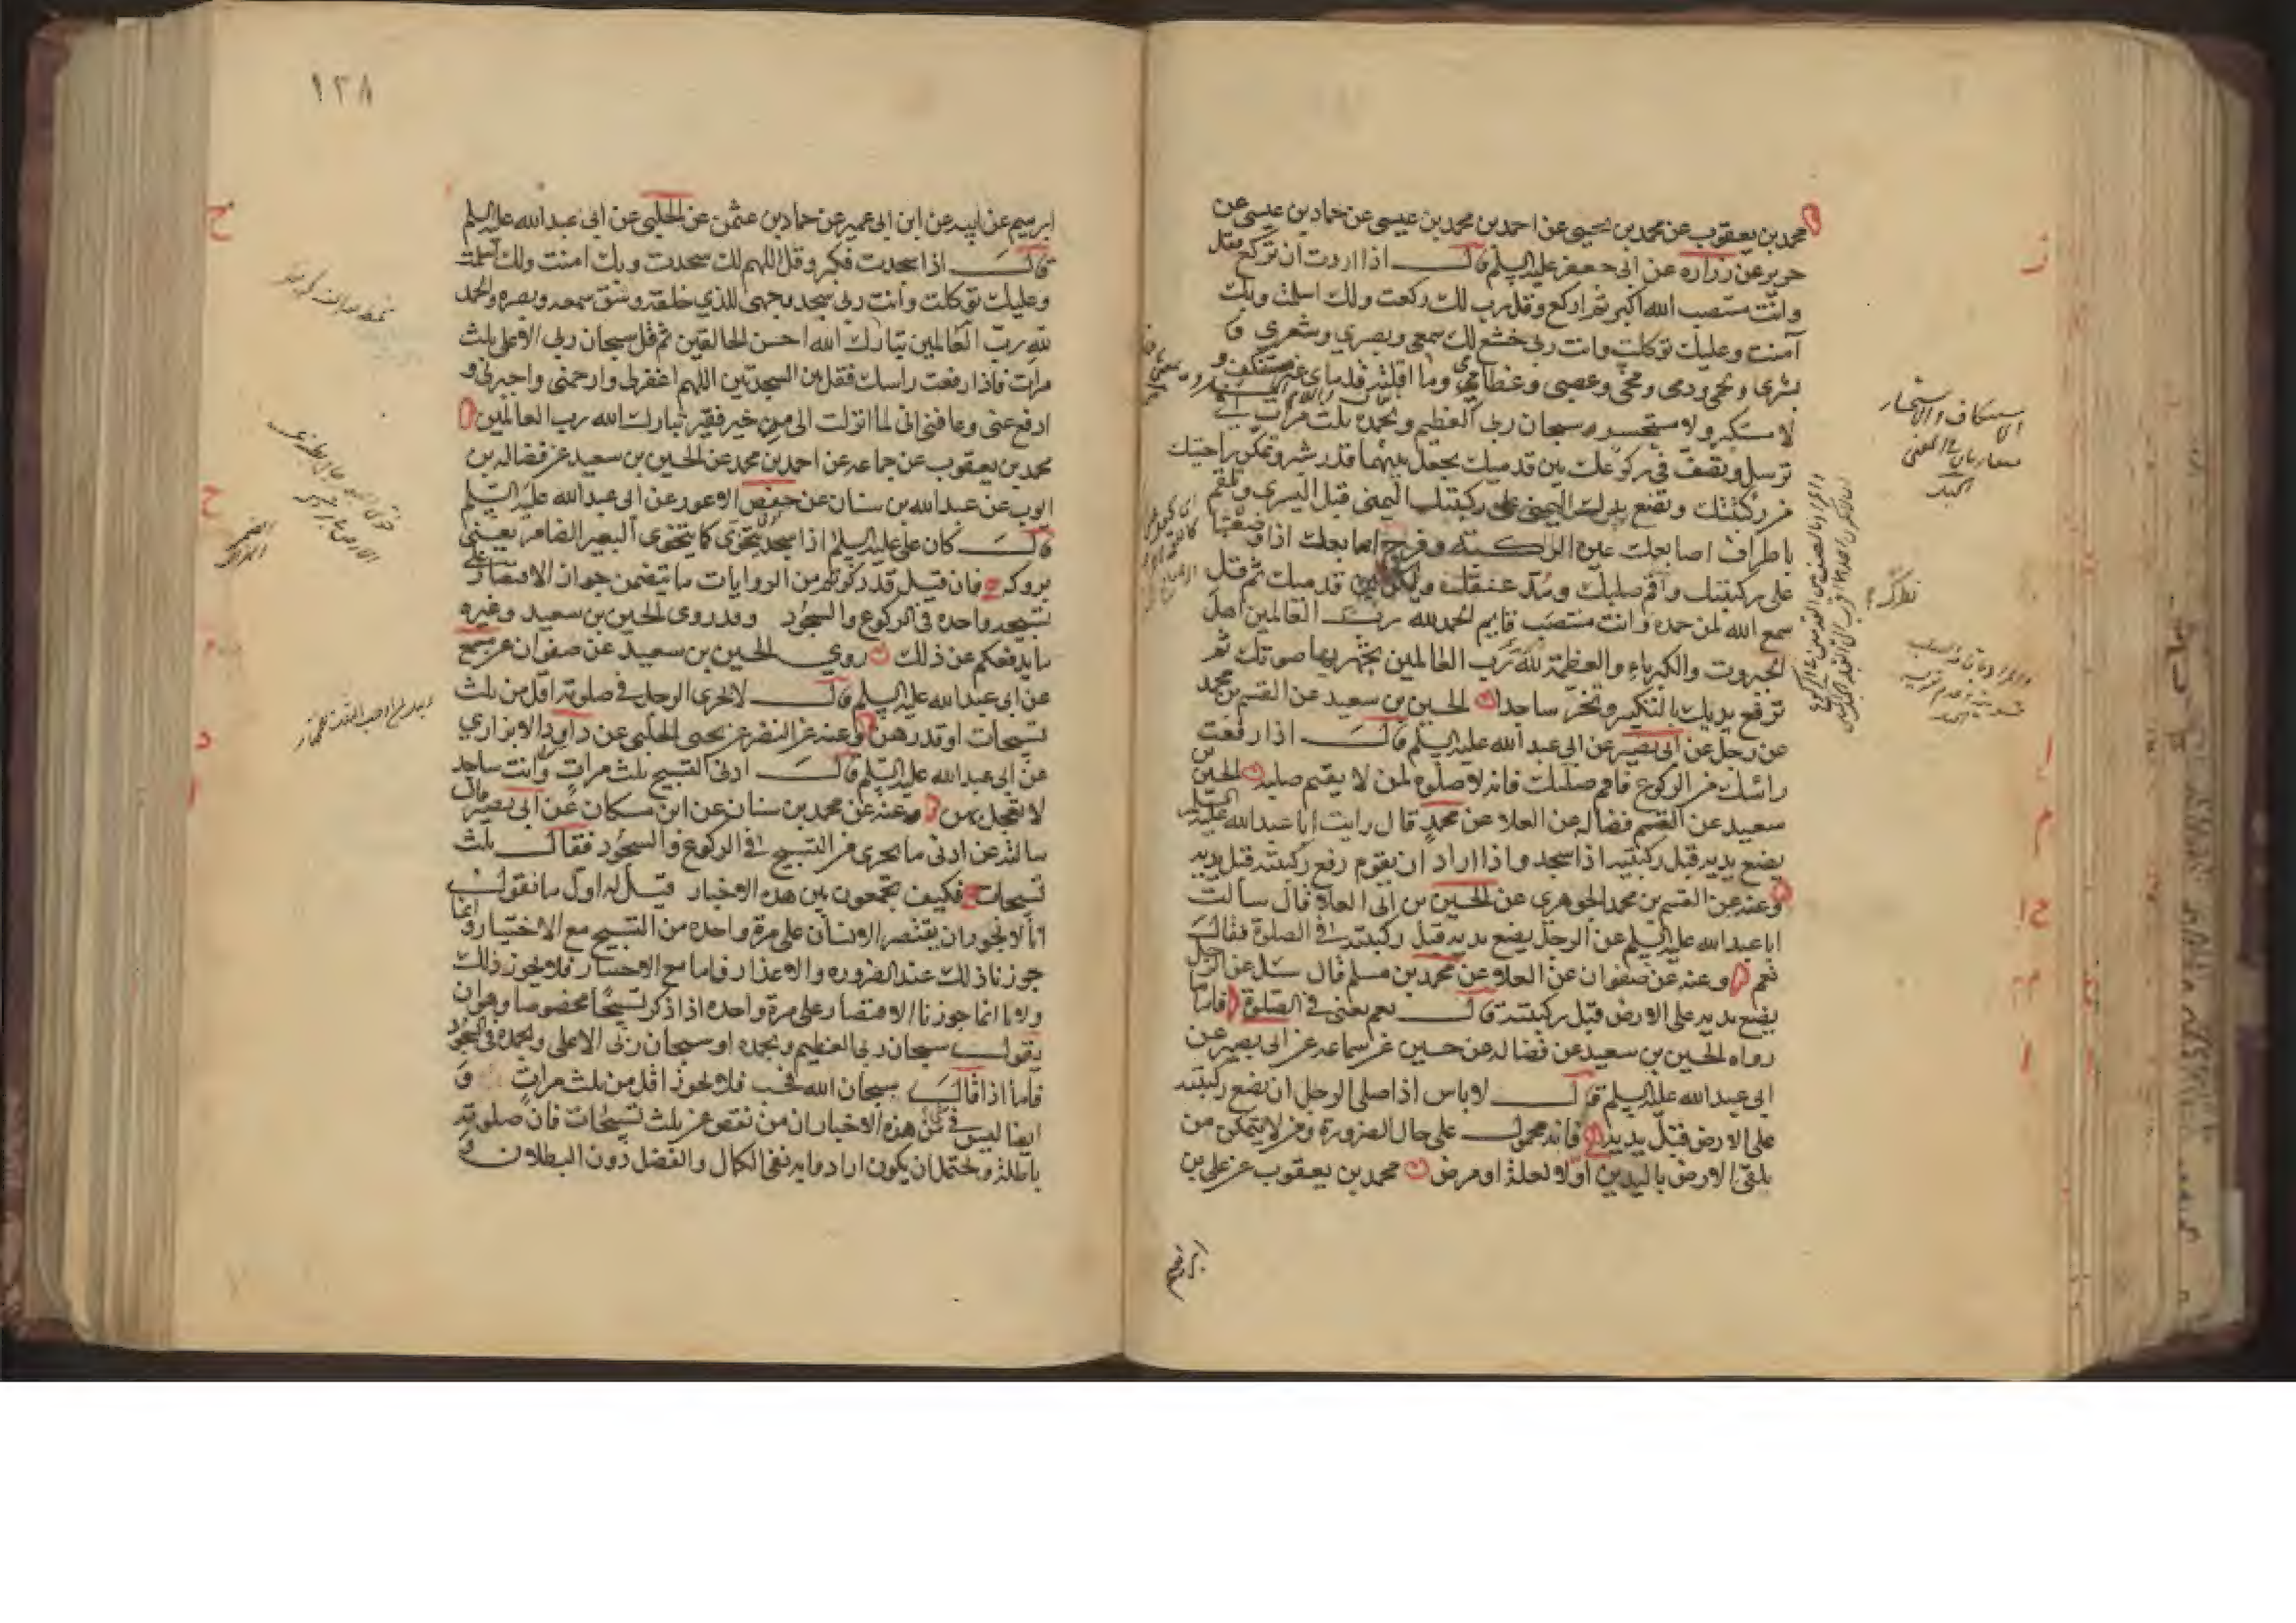 محمد بن يعقوب عن محمد بن يحيى عن احمد بن محمد بن عيسى عن حماد بن عيسى عن
حريز عن زراره عن ابى جعفر عليه السلم قال اذا اردت ان تركع فقل
وانت منتصب الله اكبر ثم اركع وقل رب لك ركعت ولك اسلمت وبك
آمنت وعليك توكلت وانت ربى خشع لك سمعى وبصري وشعري و
بشرى ولحمى ودمى ومخى وعصبى وعظامى وما اقلته قدماى غير مستنكف و
لا مستكبر ولا مستحسر سبحان ربى العظيم وبحمده ثلث مرات
ترسل وتصف فى ركوعك بين قدميك يجعل بينهما قدر شبر وتمكن راحتيك
من ركبتيك وتضع يدك اليمنى على ركبتك اليمنى قبل اليسرى وتلقم
باطراف اصابعك عين الركبه وفرج اصابعك اذا وضعتها
على ركبتيك واقم صلبك ومد عنقك وليكن قدميك ثم قل
سمع الله لمن حمده وانت منتصب قايم الحمد لله رب العالمين اهل
الجبروت والكبرياء والعظمة لله رب العالمين يجهر بها صوتك ثم
ترفع يديك بالتكبير وتخر ساجدا الحسين بن سعيد عن القسم بن محمد
عن رجل عن ابى بصير عن ابى عبد الله عليه السلم قال اذا رفعت
راسك من الركوع فاقم صلبك فانه لا صلوة لمن لا يقيم صلبه الحسين بن
سعيد عن القسم فضاله عن العلا عن محمد قال رايت ابا عبد الله عليه السلم
يضع يديه قبل ركبتيه اذا سجد واذا اراد ان يقوم رفع ركبتيه قبل يديه
وعنه عن القسم بن محمد الجوهرى عن الحسين بن ابى العلا قال سالت
ابا عبد الله عليه السلم عن الرجل يضع يديه قبل ركبتيه فى الصلوة فقال
نعم وعنه عن صفوان عن العلا عن محمد بن مسلم قال سئل عن الرجل
يضع يديه على الارض قبل ركبتيه قال نعم يعنى فى الصلوة فاما ما
رواه الحسين بن سعيد عن فضاله عن حسين عن سماعه عن ابى بصير عن
ابى عبد الله عليه السلم قال لا باس اذا صلى الرجل ان يضع ركبتيه
على الارض قبل يديه فانه محمول على حال الضرورة ومن لا يتمكن من
يلقى الارض باليدين اولا لعلة او مرض محمد بن يعقوب عن على بن
ابرهيم
١٣٨
ابرهيم عن ابيه عن ابن ابى عمير عن حماد بن عثمن عن الحلبى عن ابى عبد الله عليه السلم
قال اذا سجدت فكبر وقل اللهم لك سجدت وبك امنت ولك اسلمت
وعليك توكلت وانت ربى سجد وجهى للذي خلقه وشق سمعه وبصره والحمد
لله رب العالمين تبارك الله احسن الخالقين ثم قل سبحان ربى الاعلى ثلث
مرات فاذا رفعت راسك فقل بين السجدتين اللهم اغفرلى وارحمنى واجبرنى و
ادفع عنى وعافنى انى لما انزلت الى من خير فقير تبارك الله رب العالمين
محمد بن يعقوب عن جماعه عن احمد بن محمد عن الحسين بن سعيد عن فضاله بن
ايوب عن عبد الله بن سنان عن حفص الاعور عن ابى عبد الله عليه السلم
قال كان على عليه السلم اذا سجد يتخوى كما يتخوى البعير الضامر يعنى
بروكه فان قيل قد ذكرتم من الروايات ما يتضمن جواز الاقتصار على
تسبيحه واحده فى الركوع والسجود وقد روى الحسين بن سعيد وغيره
ما يدفعكم عن ذلك روي الحسين بن سعيد عن صفوان عن مسمع
عن ابى عبد الله عليه السلم قال لا يجزى الرجل فى صلوته اقل من ثلث
تسبيحات او قدرهن وعنه عن النضر عن يحيى الحلبى عن داود الابزاري
عن ابى عبد الله عليه السلم قال ادنى التسبيح ثلث مرات وانت ساجد
لا تعجل بهن وعنه عن محمد بن سنان عن ابن مسكان عن ابى بصير قال
سالته عن ادنى ما يجزى من التسبيح فى الركوع والسجود فقال ثلث
تسبيحات فكيف تجمعون بين هذه الاخبار قيل له اول ما نقول
انا لا نجوز ان يقتصر الانسان على مرة واحده من التسبيح مع الاختيار وانما
جوزنا ذلك عند الضروره والاعذار فاما مع الاختيار فلا يجوز ذلك
ولانا انما جوزنا الاقتصار على مرة واحده اذا ذكر تسبيحا مخصوصا وهو ان
يقول سبحان ربى العظيم وبحمده او سبحان ربى الاعلى وبحمده فى السجود
فاما اذا قال سبحان الله فحسب فلا يجوز اقل من ثلث مرات و
ايضا ليس فى شى من هذه الاخبار ان من نقص عن ثلث تسبيحات فان صلوته
باطلة ويحتمل ان يكون اراد وا به نفى الكمال والفضل دون البطلان و